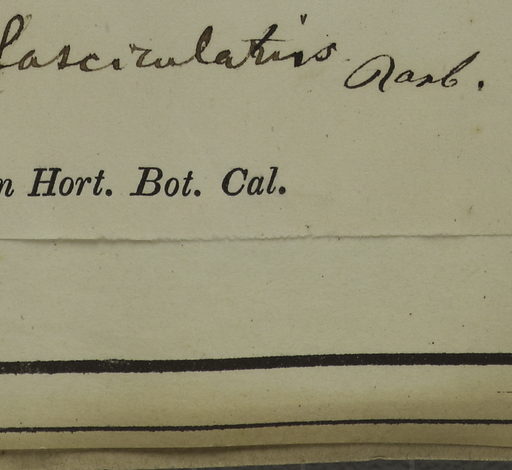 fasciculatus Roxb.
n Hort. Bot. Cal.